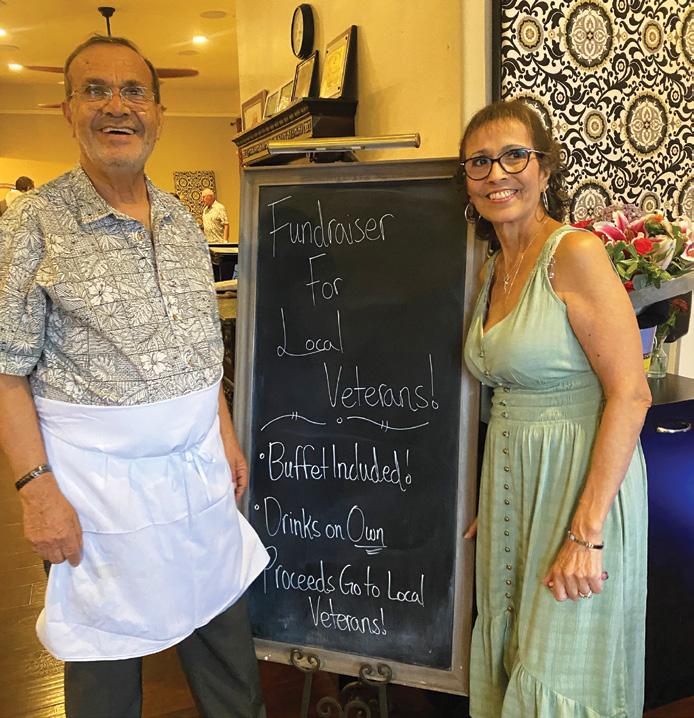 Fundraiser
For
Local
Veterans!
• Buffet Included!
• Drinks on Own
Proceeds Go to Local
Veterans!